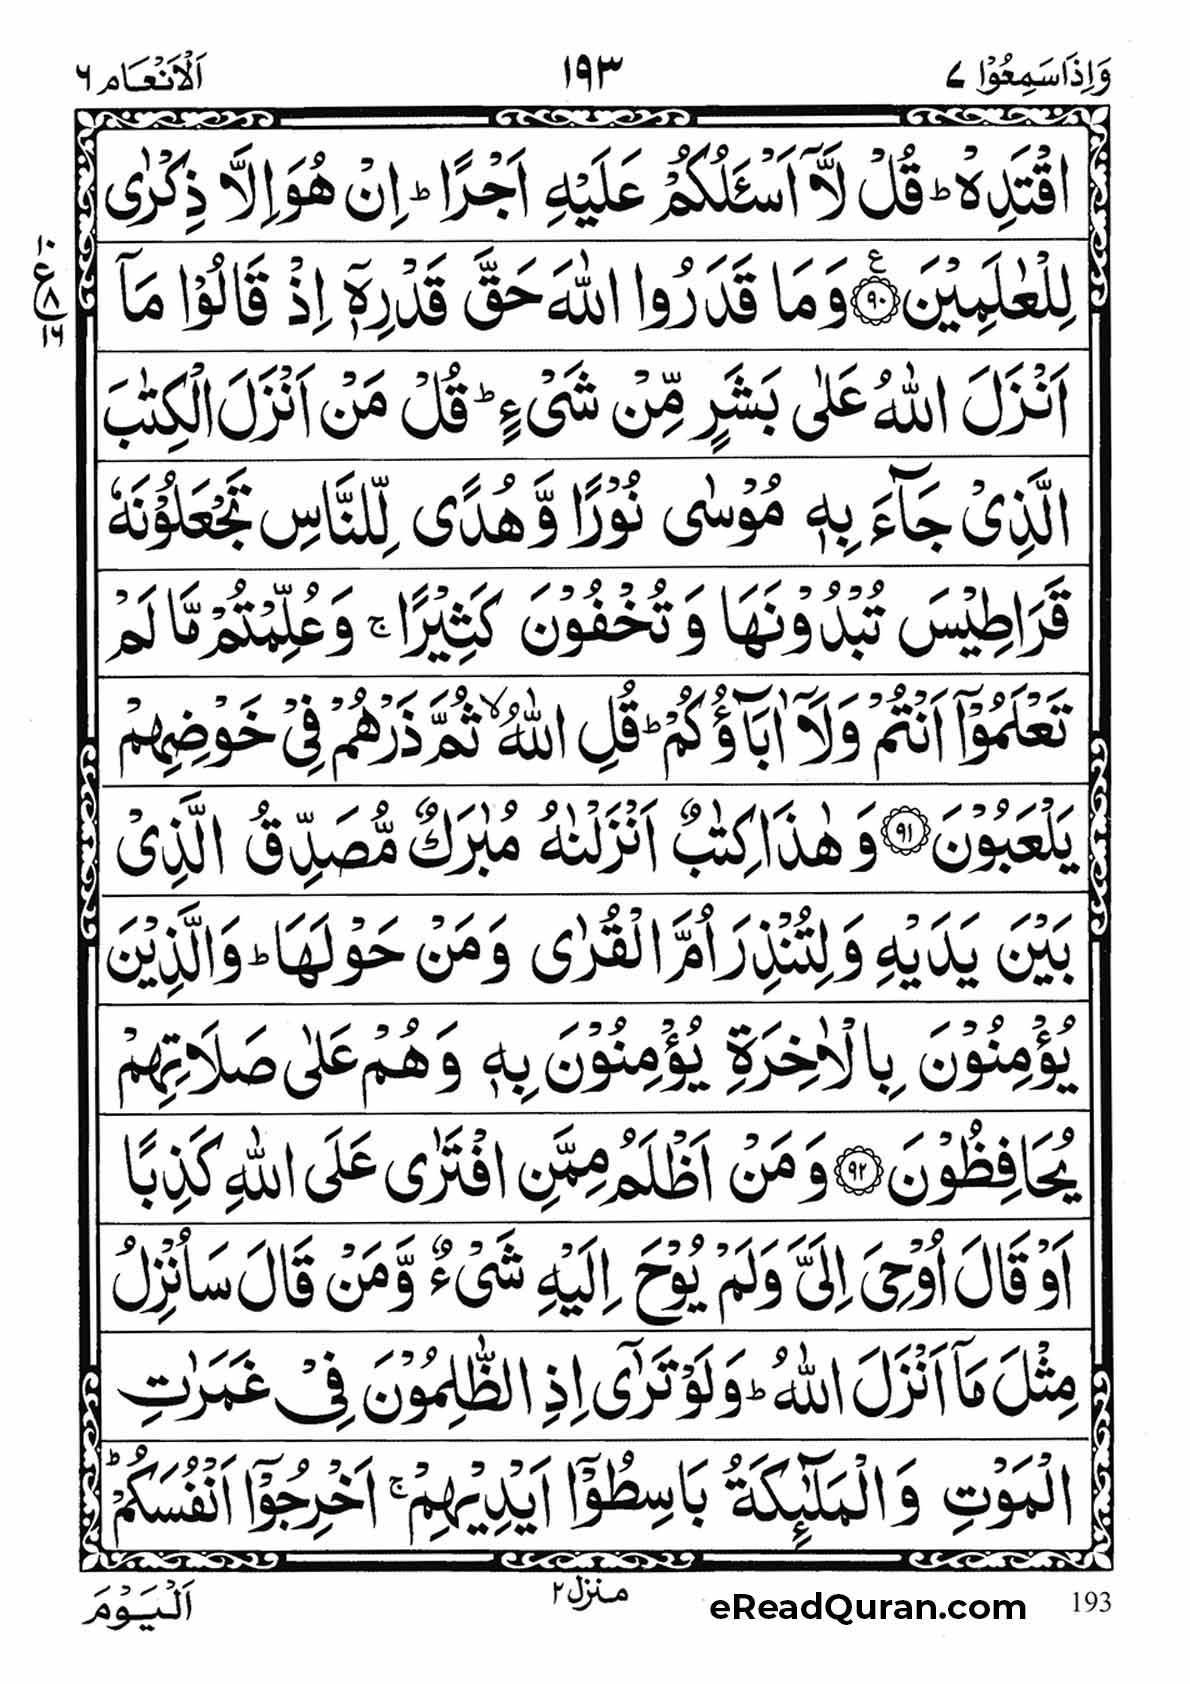 وَاِذَا سَمِعُوْا ٧
١٩٣
اَلْاَنْعَام ٦
اقْتَدِهْ ؕ قُلْ لَّاۤ اَسْـَٔلُكُمْ عَلَيْهِ اَجْرًا ؕ اِنْ هُوَ اِلَّا ذِكْرٰى
لِلْعٰلَمِيْنَ ۝٩٠ ع وَمَا قَدَرُوا اللّٰهَ حَقَّ قَدْرِهٖۤ اِذْ قَالُوْا مَاۤ
١٠
ع ٨
١٦
اَنْزَلَ اللّٰهُ عَلٰى بَشَرٍ مِّنْ شَىْءٍ ؕ قُلْ مَنْ اَنْزَلَ الْكِتٰبَ
الَّذِىْ جَآءَ بِهٖ مُوْسٰى نُوْرًا وَّهُدًى لِّلنَّاسِ تَجْعَلُوْنَهٗ
قَرَاطِيْسَ تُبْدُوْنَهَا وَتُخْفُوْنَ كَثِيْرًا ۚ وَعُلِّمْتُمْ مَّا لَمْ
تَعْلَمُوْۤا اَنْتُمْ وَلَاۤ اٰبَآؤُكُمْ ؕ قُلِ اللّٰهُ ۙ ثُمَّ ذَرْهُمْ فِىْ خَوْضِهِمْ
يَلْعَبُوْنَ ۝٩١ وَهٰذَا كِتٰبٌ اَنْزَلْنٰهُ مُبٰرَكٌ مُّصَدِّقُ الَّذِىْ
بَيْنَ يَدَيْهِ وَلِتُنْذِرَ اُمَّ الْقُرٰى وَمَنْ حَوْلَهَا ؕ وَالَّذِيْنَ
يُؤْمِنُوْنَ بِالْاٰخِرَةِ يُؤْمِنُوْنَ بِهٖ وَهُمْ عَلٰى صَلَاتِهِمْ
يُحَافِظُوْنَ ۝٩٢ وَمَنْ اَظْلَمُ مِمَّنِ افْتَرٰى عَلَى اللّٰهِ كَذِبًا
اَوْ قَالَ اُوْحِىَ اِلَىَّ وَلَمْ يُوْحَ اِلَيْهِ شَىْءٌ وَّمَنْ قَالَ سَاُنْزِلُ
مِثْلَ مَاۤ اَنْزَلَ اللّٰهُ ؕ وَلَوْ تَرٰٓى اِذِ الظّٰلِمُوْنَ فِىْ غَمَرٰتِ
الْمَوْتِ وَالْمَلٰٓئِكَةُ بَاسِطُوْۤا اَيْدِيْهِمْ ۚ اَخْرِجُوْۤا اَنْفُسَكُمْ ؕ
اَلْيَوْمَ
منزل ٢
eReadQuran.com
193